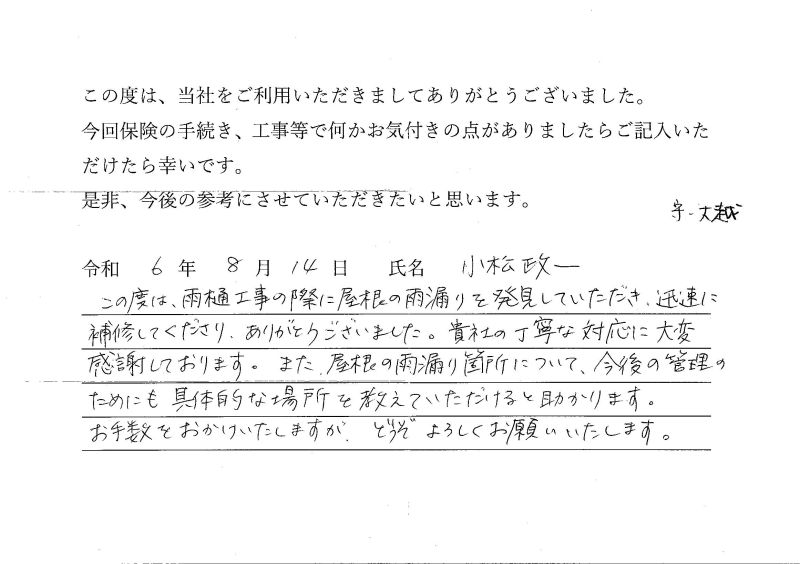 この度は、当社をご利用いただきましてありがとうございました。
今回保険の手続き、工事等で何かお気付きの点がありましたらご記入いた
だけたら幸いです。
是非、今後の参考にさせていただきたいと思います。
大越
令和 6 年 8 月 14 日 氏名 小松政一
この度は、雨樋工事の際に屋根の雨漏りを発見していただき、迅速に
補修してくださり、ありがとうございました。貴社の丁寧な対応に大変
感謝しております。また、屋根の雨漏り箇所について、今後の管理の
ためにも具体的な場所を教えていただけると助かります。
お手数をおかけいたしますが、どうぞよろしくお願いいたします。